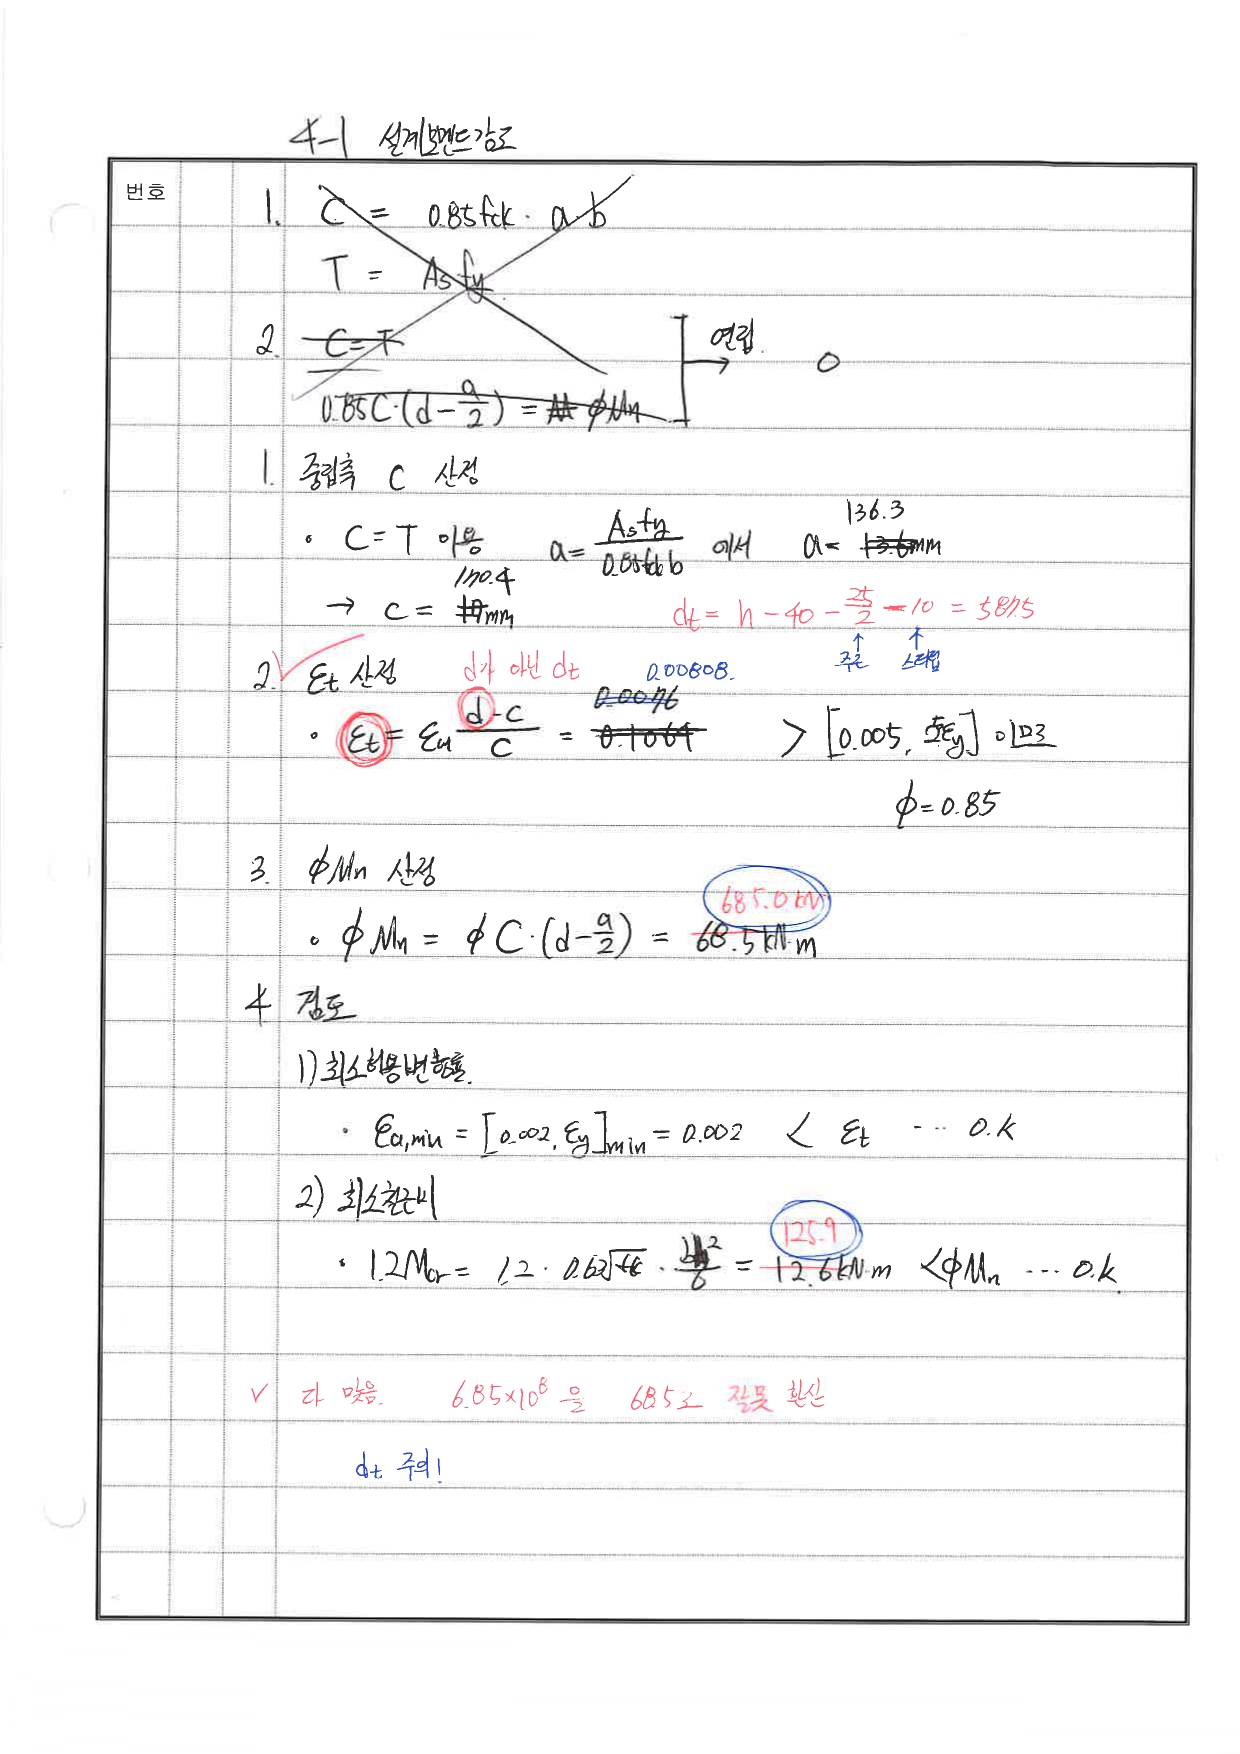 4-1 설계모멘트강도
번호
1. C = 0.85fck · a b
T = As fy
2. C = T
연립
0.85C·(d-a/2) = M ϕMn
1. 중립축 C 산정
136.3
• C=T 이용 a = As fy / 0.85fck b 에서 a = 13.6mm
170.4
→ C = 17mm dt = h - 40 - 25/2 - 10 = 587.5
주근 스터럽
2. εt 산정 d가 아닌 dt 0.00808.
0.0076
• εt = εu d-c / c = 0.1064 > [0.005, 2.5εy] 이므로
ϕ = 0.85
3. ϕMn 산정
685.0 kN
• ϕMn = ϕ C·(d-a/2) = 68.5kN·m
4 검토
1) 최소허용변형률.
• εa,min = [0.002, εy]min = 0.002 < εt ... O.K
2) 최소철근비
125.9
• 1.2Mcr = 1.2 · 0.63√fck · bh²/6 = 12.6kN·m < ϕMn ... O.K
✓ 다 맞음. 6.85×10⁸ 을 68.5로 잘못 환산
dt 주의!